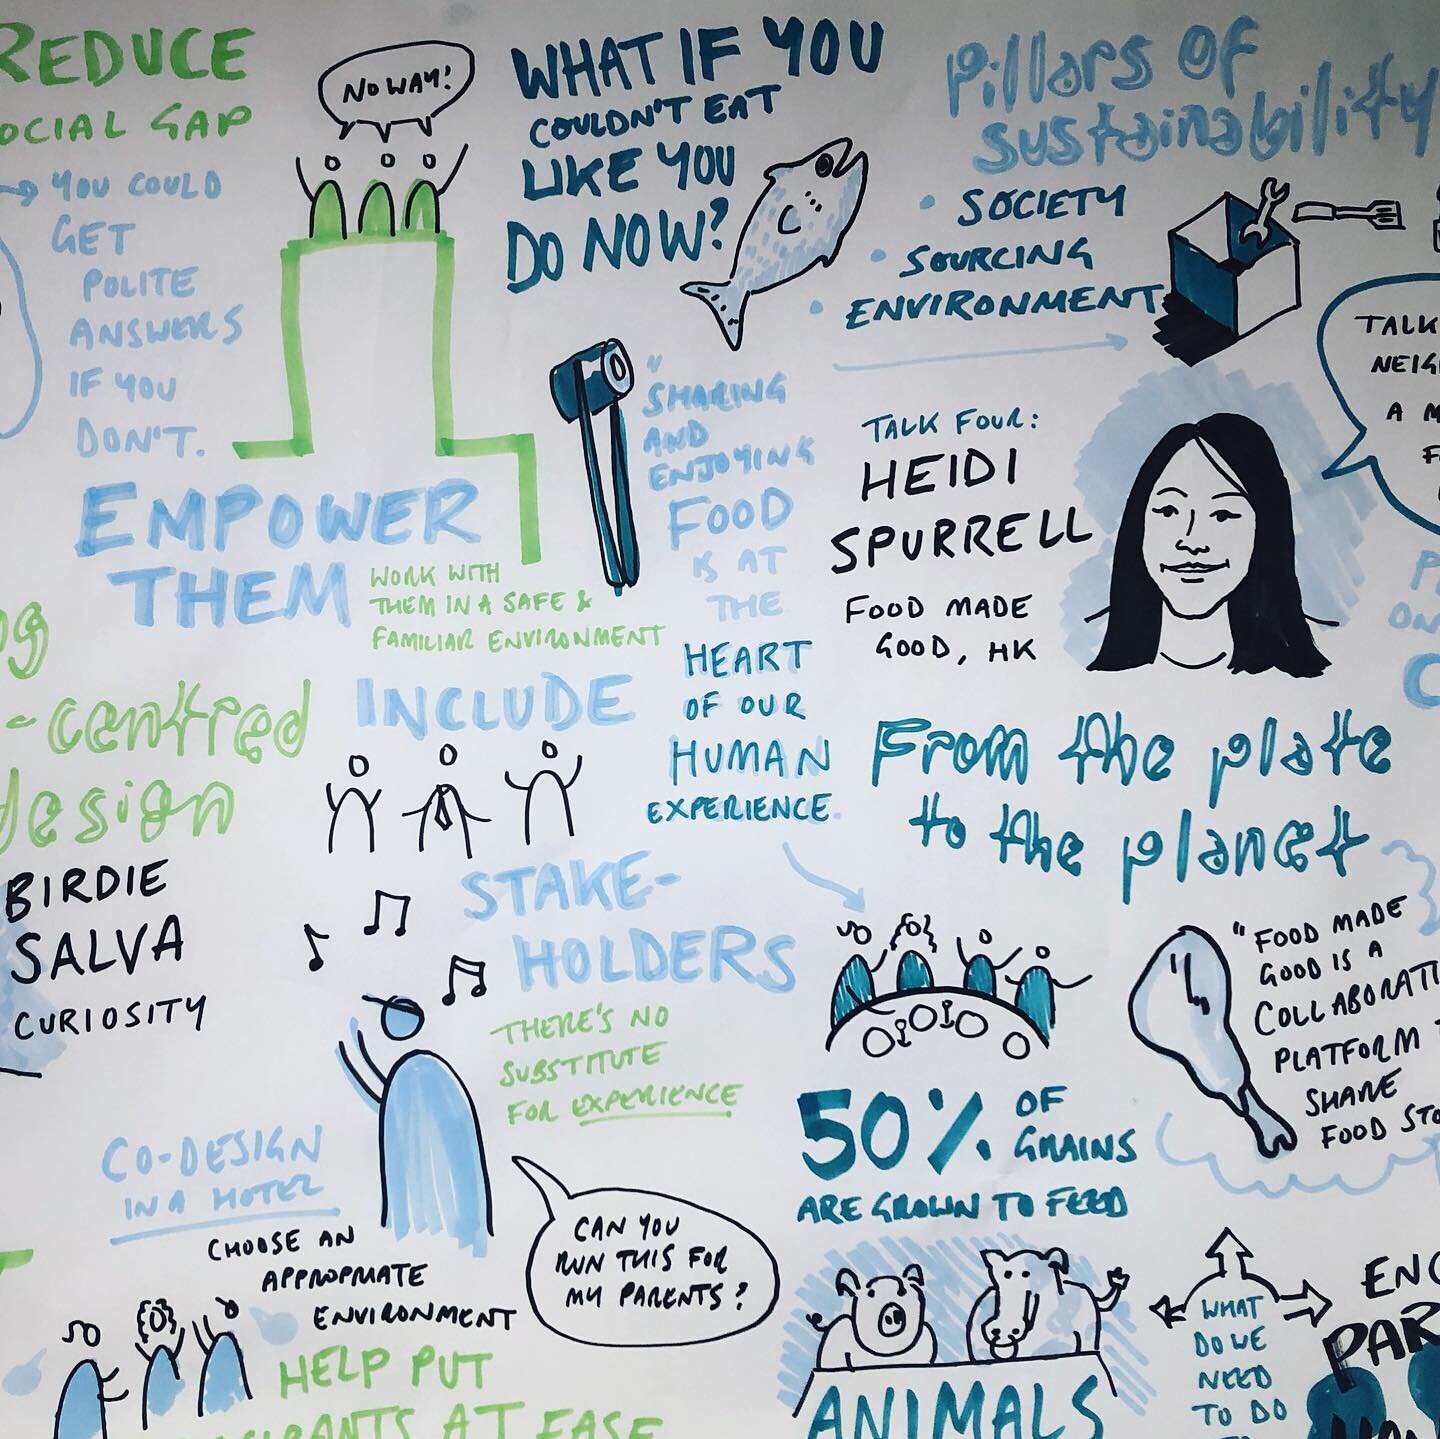 REDUCE
OCIAL GAP
YOU COULD
GET
POLITE
ANSWERS
IF YOU
DON'T.
NO WAY!
EMPOWER
THEM
WORK WITH
THEM IN A SAFE &
FAMILIAR ENVIRONMENT
-centred
design
BIRDIE
SALVA
CURIOSITY
INCLUDE
STAKE-
HOLDERS
THERE'S NO
SUBSTITUTE
FOR EXPERIENCE
CO-DESIGN
IN A HOTEL
CHOOSE AN
APPROPRIATE
ENVIRONMENT
CAN YOU
RUN THIS FOR
MY PARENTS?
HELP PUT
IPANTS AT EASE
WHAT IF YOU
COULDN'T EAT
LIKE YOU
DO NOW?
"SHARING
AND
ENJOYING
FOOD
IS AT
THE
HEART
OF OUR
HUMAN
EXPERIENCE
Pillars of
sustainability
• SOCIETY
• SOURCING
• ENVIRONMENT
TALK FOUR:
HEIDI
SPURRELL
FOOD MADE
GOOD, HK
TALK
NEIG
A M
F
From the plate
to the planet
"FOOD MADE
GOOD IS A
COLLABORATI
PLATFORM T
SHARE
FOOD STO
50% OF
GRAINS
ARE GROWN TO FEED
ANIMALS
WHAT
DO WE
NEED
TO DO
ENC
PAR